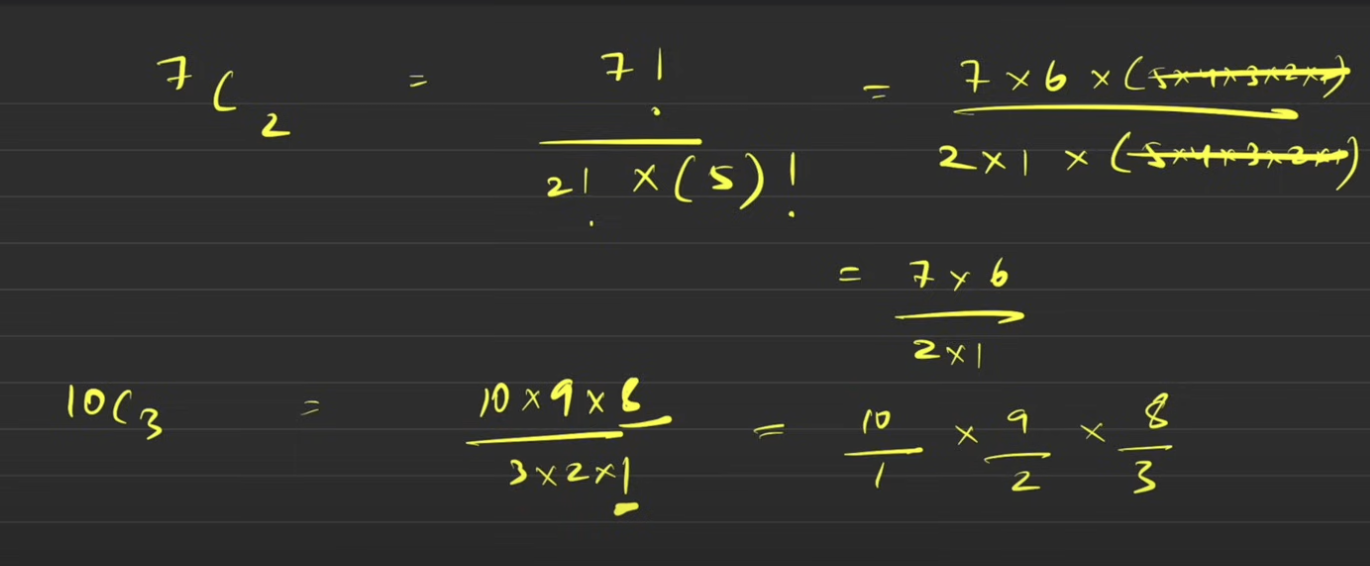 7C2 = 7! / 2! × (5)! = 7 × 6 × (5×4×3×2×1) / 2 × 1 × (5×4×3×2×1)
= 7 × 6 / 2 × 1
10C3 = 10 × 9 × 8 / 3 × 2 × 1 = 10/1 × 9/2 × 8/3